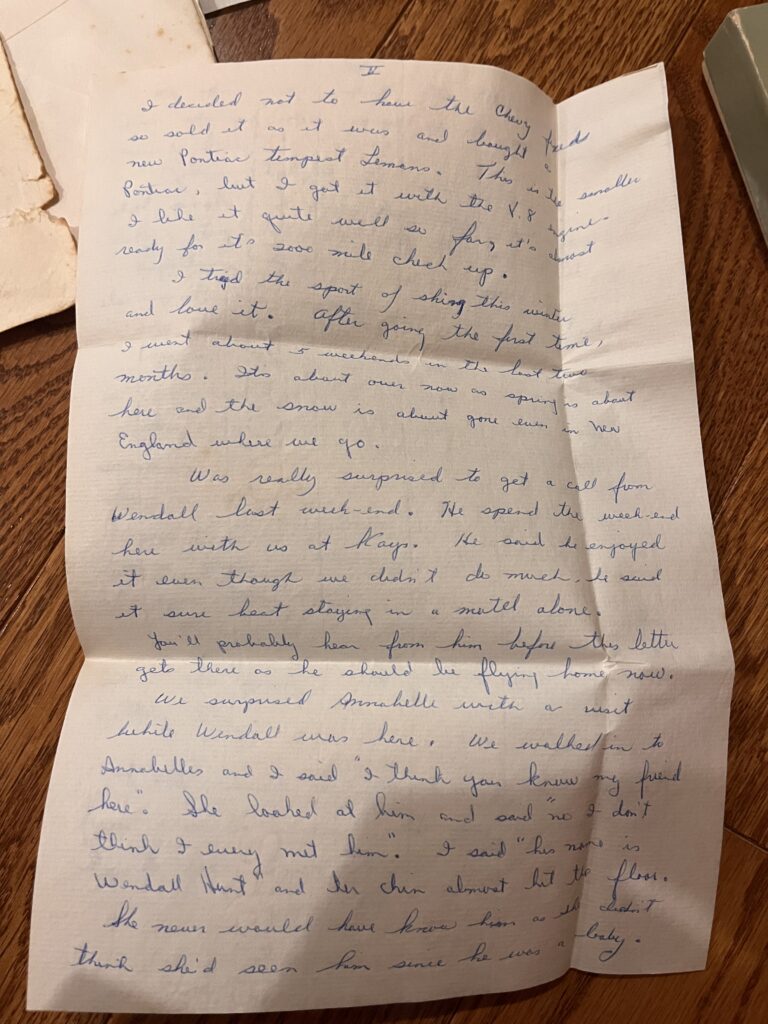 II
I decided not to have the Chevy fixed
so sold it as it was and bought a
new Pontiac Tempest Lemans. This is the smaller
Pontiac, but I got it with the V.8 engine.
I like it quite well so far, it's almost
ready for it's 2000 mile check up.
I tried the sport of skiing this winter
and love it. After going the first time,
I went about 5 weekends in the last two
months. Its about over now as spring is about
here and the snow is about gone even in New
England where we go.
Was really surprised to get a call from
Wendall last week-end. He spend the week-end
here with us at Kays. He said he enjoyed
it even though we didn't do much, he said
it sure beat staying in a motel alone.
You'll probably hear from him before this letter
gets there as he should be flying home now.
We surprised Annabelle with a visit
while Wendall was here. We walked in to
Annabelles and I said "I think you know my friend
here". She looked at him and said "no I don't
think I every met him". I said "his name is
Wendall Hunt" and her chin almost hit the floor.
She never would have know him as she didn't
think she'd seen him since he was a baby.